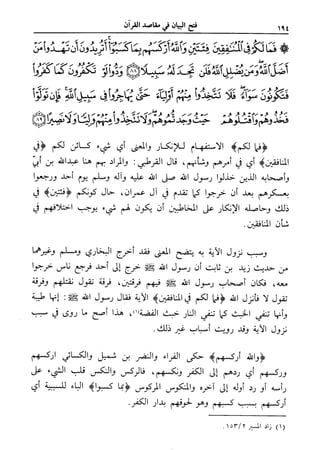 ١٩٤ فتح البيان في مقاصد القرآن
۞ فَمَا لَكُمْ فِي الْمُنَافِقِينَ فِئَتَيْنِ وَاللَّهُ أَرْكَسَهُم بِمَا كَسَبُوا أَتُرِيدُونَ أَن تَهْدُوا مَنْ
أَضَلَّ اللَّهُ وَمَن يُضْلِلِ اللَّهُ فَلَن تَجِدَ لَهُ سَبِيلًا ٨٨ وَدُّوا لَوْ تَكْفُرُونَ كَمَا كَفَرُوا
فَتَكُونُونَ سَوَاءً فَلَا تَتَّخِذُوا مِنْهُمْ أَوْلِيَاءَ حَتَّى يُهَاجِرُوا فِي سَبِيلِ اللَّهِ فَإِن تَوَلَّوْا
فَخُذُوهُمْ وَاقْتُلُوهُمْ حَيْثُ وَجَدتُّمُوهُمْ وَلَا تَتَّخِذُوا مِنْهُمْ وَلِيًّا وَلَا نَصِيرًا ٨٩
﴿فما لكم﴾ الاستفهام للإنكار والمعنى أي شيء كائن لكم ﴿في
المنافقين﴾ أي في أمرهم وشأنهم، قال القرطبي: والمراد بهم هنا عبدالله بن أبيّ
وأصحابه الذين خذلوا رسول الله صلى الله عليه وآله وسلم يوم أحد ورجعوا
بعسكرهم بعد أن خرجوا كما تقدم في آل عمران، حال كونكم ﴿فئتين﴾ في
ذلك وحاصله الإنكار على المخاطبين أن يكون لهم شيء يوجب اختلافهم في
شأن المنافقين.
وسبب نزول الآية به يتضح المعنى فقد أخرج البخاري ومسلم وغيرهما
من حديث زيد بن ثابت أن رسول الله ﷺ خرج إلى أحد فرجع ناس خرجوا
معه، فكان أصحاب رسول الله ﷺ فيهم فرقتين، فرقة تقول نقتلهم وفرقة
تقول لا فأنزل الله ﴿فما لكم في المنافقين﴾ الآية فقال رسول الله ﷺ: إنها طيبة
وأنها تنفي الخبث كما تنفي النار خبث الفضة(١)، هذا أصح ما روى في سبب
نزول الآية وقد رويت أسباب غير ذلك.
﴿والله أركسهم﴾ حكى الفراء والنضر بن شميل والكسائي اركسهم
وركسهم أي ردهم إلى الكفر ونكسهم، فالركس والنكس قلب الشيء على
رأسه أو رد أوله إلى آخره والمنكوس المركوس ﴿بما كسبوا﴾ الباء للسببية أي
أركسهم بسبب كسبهم وهو لحوقهم بدار الكفر.
(١) زاد المسير ١٥٣/٢.